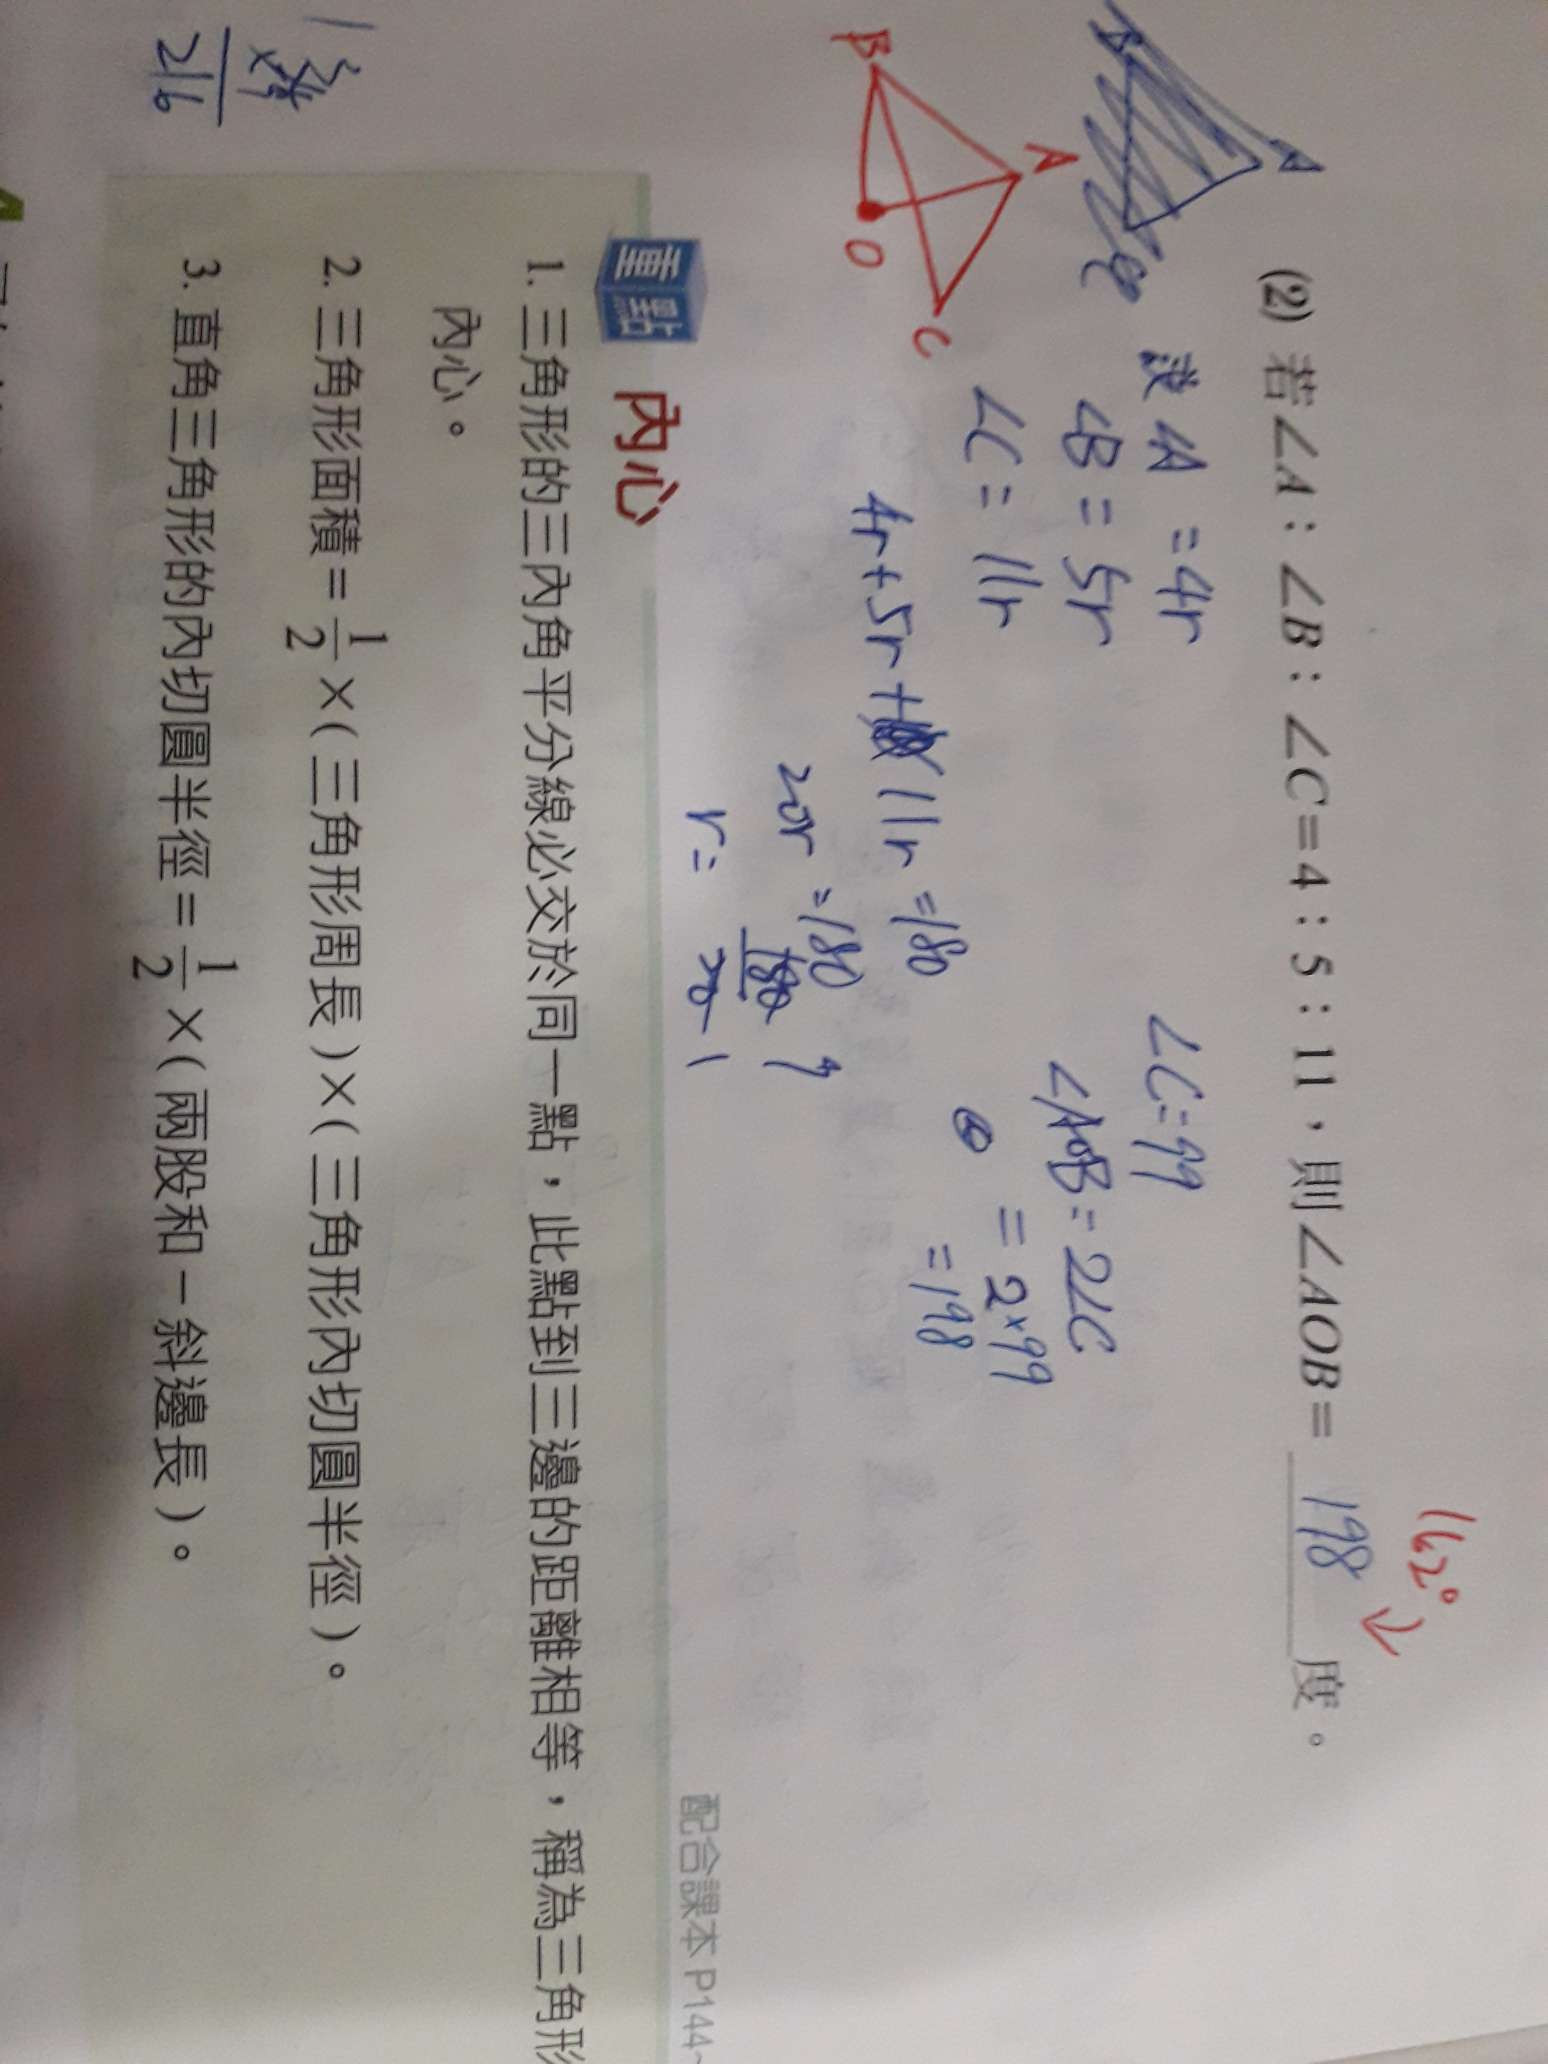 (2) 若∠A：∠B：∠C＝4：5：11，則∠AOB＝198度。
162°
設∠A＝4r
∠B＝5r
∠C＝11r
4r+5r+11r＝180
20r＝180
r＝180/20
9
1
∠C＝99
∠AOB＝2∠C
＝2×99
＝198
A
B
O
C
216
配合課本 P144~
重點 內心
1. 三角形的三內角平分線必交於同一點，此點到三邊的距離相等，稱為三角形
內心。
2. 三角形面積＝1/2×(三角形周長)×(三角形內切圓半徑)。
3. 直角三角形的內切圓半徑＝1/2×(兩股和－斜邊長)。